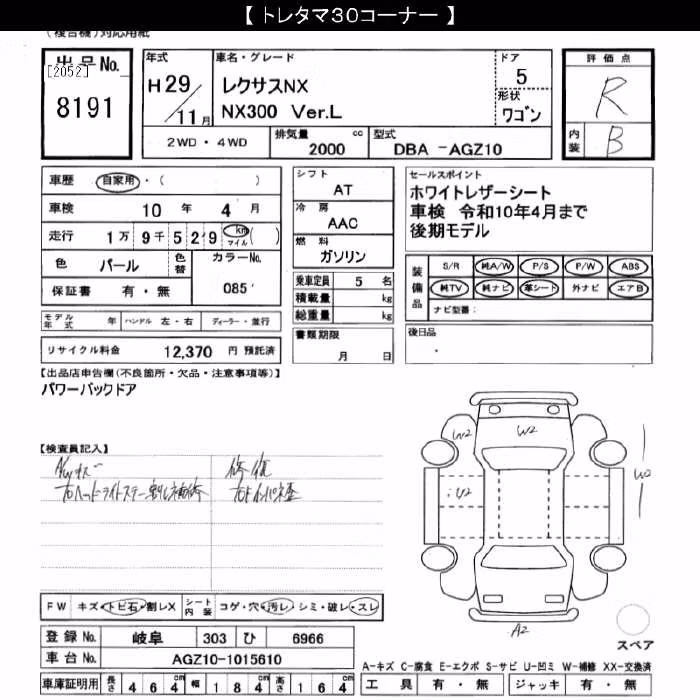 【 トレタマ30コーナー 】
(複合機)対応用紙
出品No.
[2052]
8191
年式
H 29/11月
車名・グレード
レクサスNX
NX300 Ver.L
ドア
5
形状
ワゴン
評価点
R
内装
B
2WD・4WD
排気量
2000 cc
型式
DBA -AGZ10
車歴 自家用・( )
車検 10年 4月
走行 1万 9千 5 2 9 km マイル ( )
色 パール
色替
カラーNo.
085
保証書 有・無
モデル年式 年
ハンドル 左・右
ディーラー・並行
リサイクル料金 12,370 円 預託済
シフト
AT
冷房
AAC
燃料
ガソリン
乗車定員 5 名
積載量 kg
総重量 kg
書類期限
月 日
セールスポイント
ホワイトレザーシート
車検 令和10年4月まで
後期モデル
装備品
S/R 純A/W P/S P/W ABS
純TV 純ナビ 革シート 外ナビ エアB
ナビ型番:
後日品
【出品店申告欄(不良箇所・欠品・注意事項等)】
パワーバックドア
【検査員記入】
A/Wキズ
右ヘッドライトステー割れ補修
修復
右Fインパネ歪
W2
W2
U2
W2
A2
スペア
FW キズ・トビ石・割レX
シート内装 コゲ・穴・汚レ・シミ・破レ・スレ
登録No. 岐阜 303 ひ 6966
車台No. AGZ10-1015610
車庫証明用 長さ 464cm 幅 184cm 高さ 164cm
A-キズ C-腐食 E-エクボ S-サビ U-凹ミ W-補修 XX-交換済
工具 有・無 ジャッキ 有・無